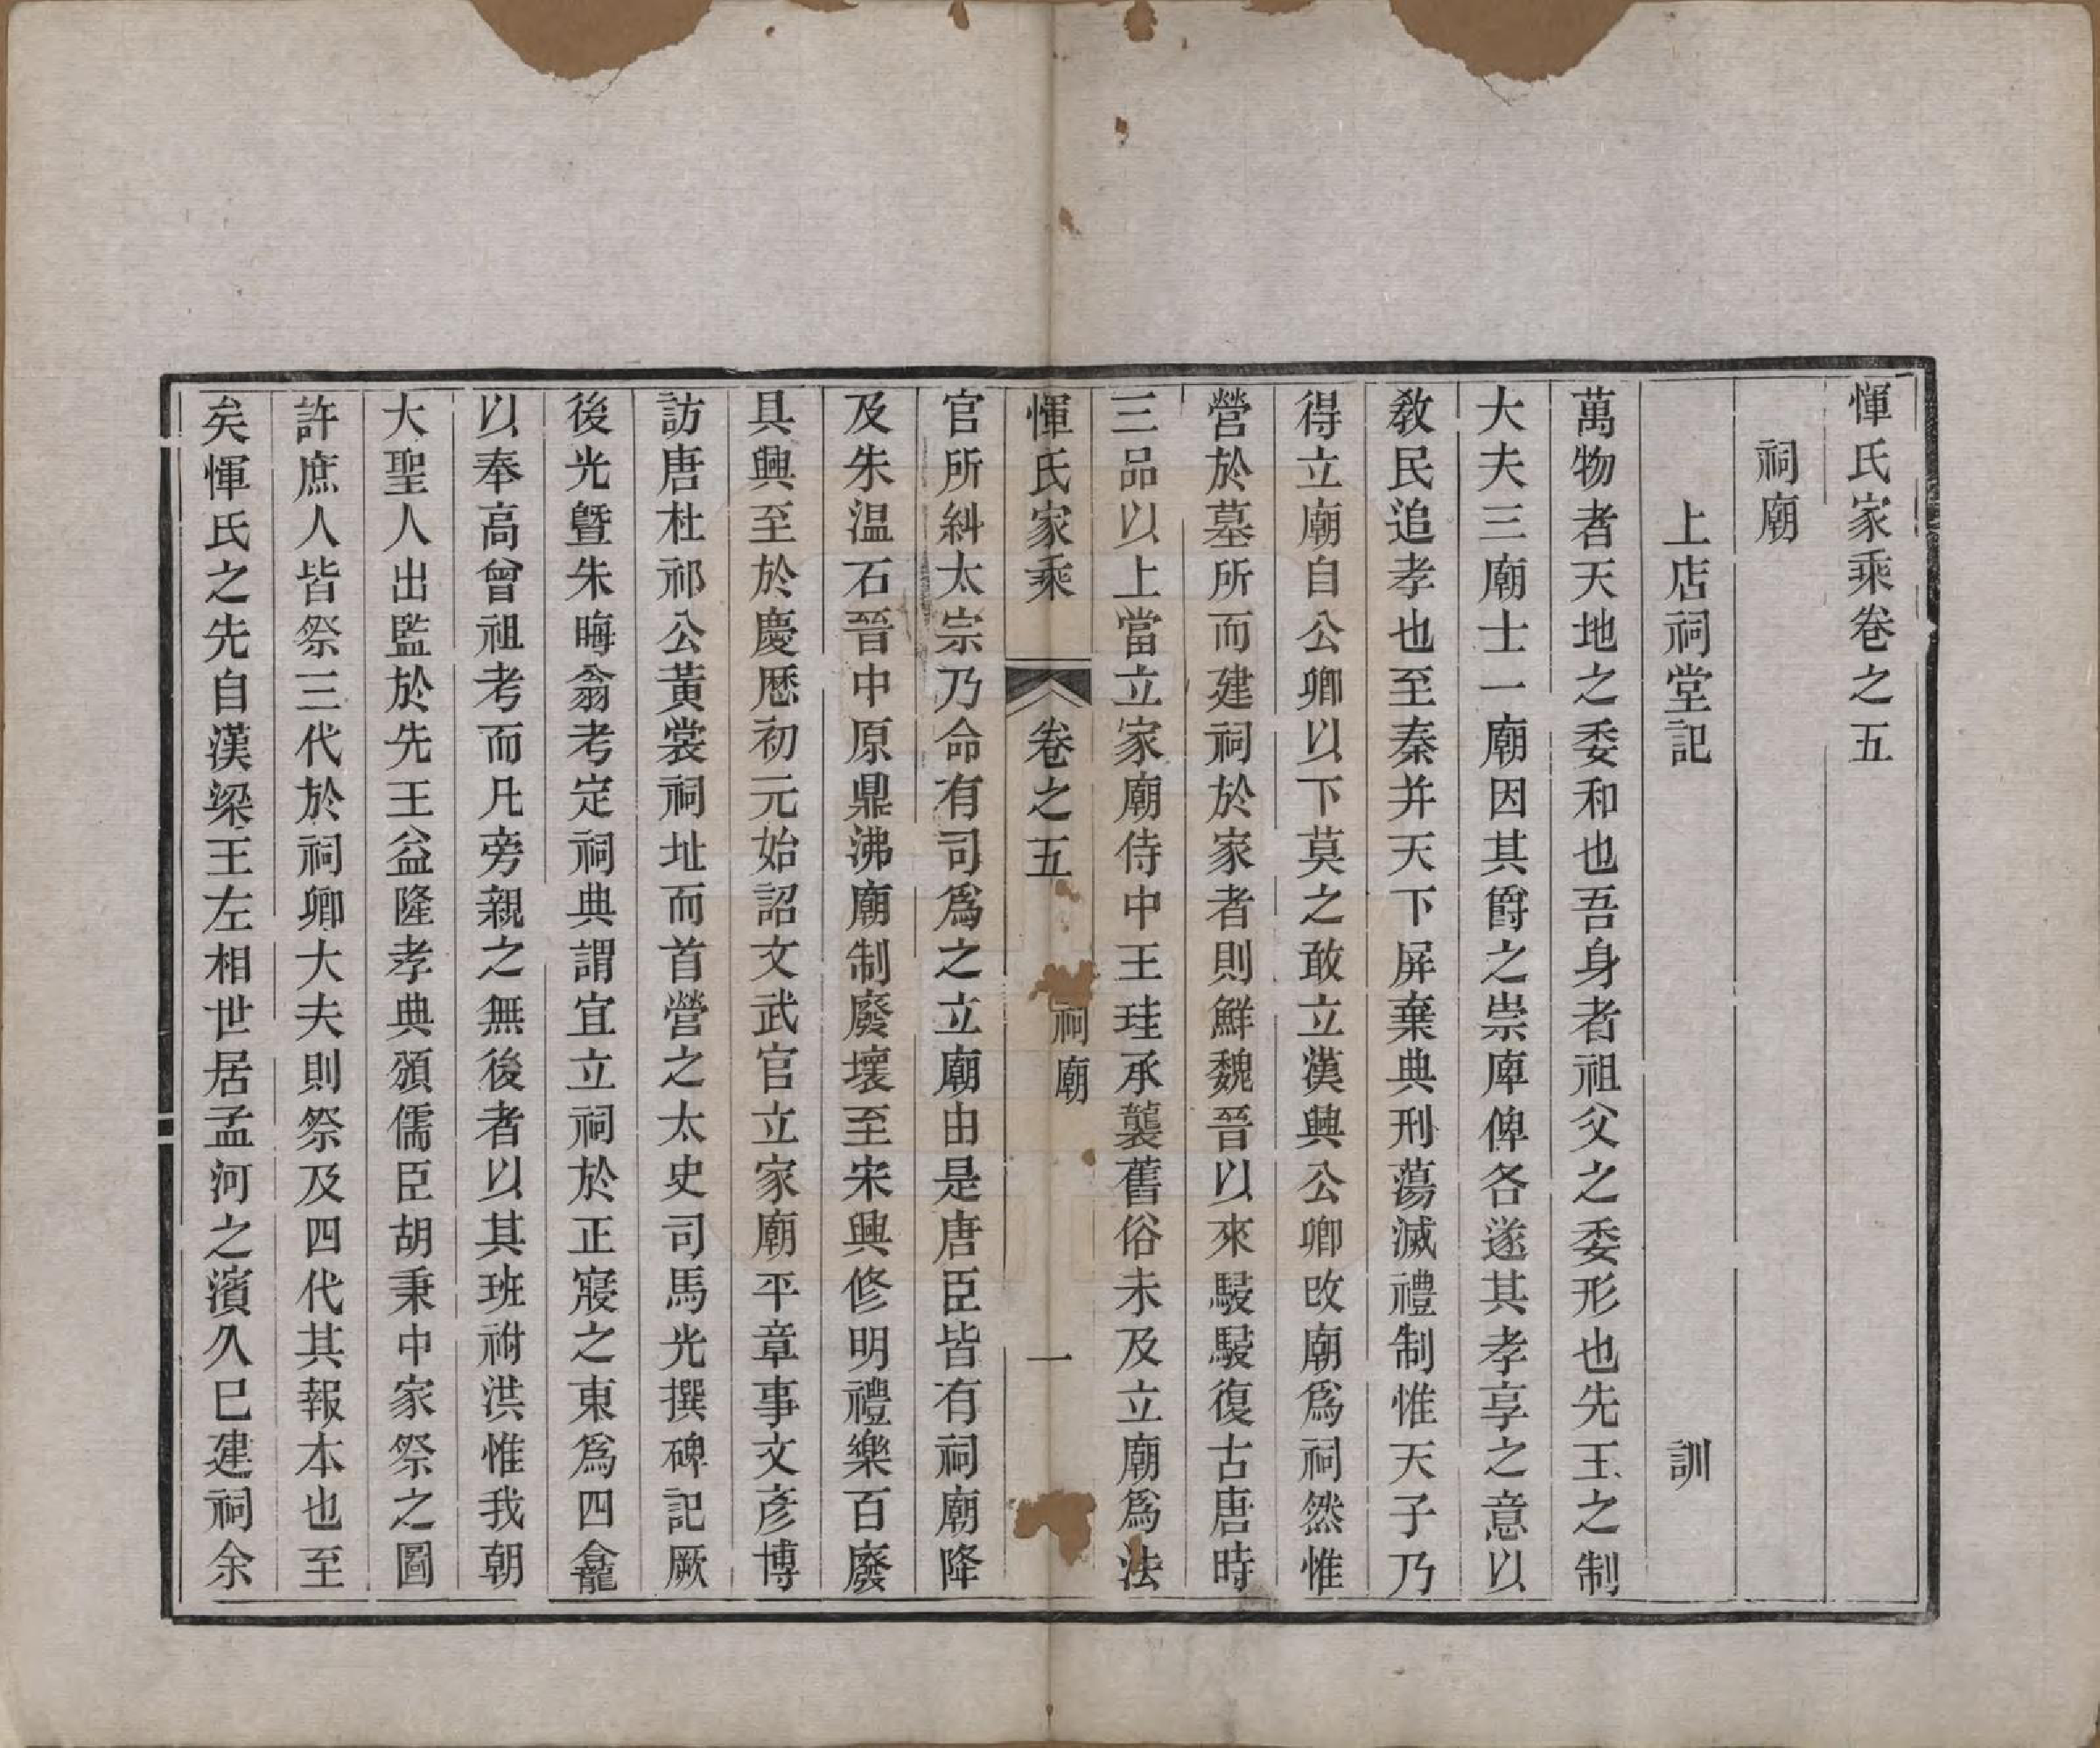 惲氏家乘卷之五
祠廟
上店祠堂記 訓
萬物者天地之委和也吾身者祖父之委形也先王之制
大夫三廟士一廟因其爵之崇庳俾各遂其孝享之意以
敎民追孝也至秦并天下屏棄典刑蕩滅禮制惟天子乃
得立廟自公卿以下莫之敢立漢興公卿改廟爲祠然惟
營於墓所而建祠於家者則鮮魏晉以來駸駸復古唐時
三品以上當立家廟侍中王珪承襲舊俗未及立廟爲法
惲氏家乘 卷之五 祠廟 一
官所糾太宗乃命有司爲之立廟由是唐臣皆有祠廟降
及朱温石晉中原鼎沸廟制廢壞至宋興修明禮樂百廢
具興至於慶厯初元始詔文武官立家廟平章事文彥博
訪唐杜祁公黃裳祠址而首營之太史司馬光撰碑記厥
後光曁朱晦翁考定祠典謂宜立祠於正寢之東爲四龕
以奉高曾祖考而凡旁親之無後者以其班祔洪惟我朝
大聖人出監於先王益隆孝典頒儒臣胡秉中家祭之圖
許庶人皆祭三代於祠卿大夫則祭及四代其報本也至
矣惲氏之先自漢梁王左相世居孟河之濱久巳建祠余